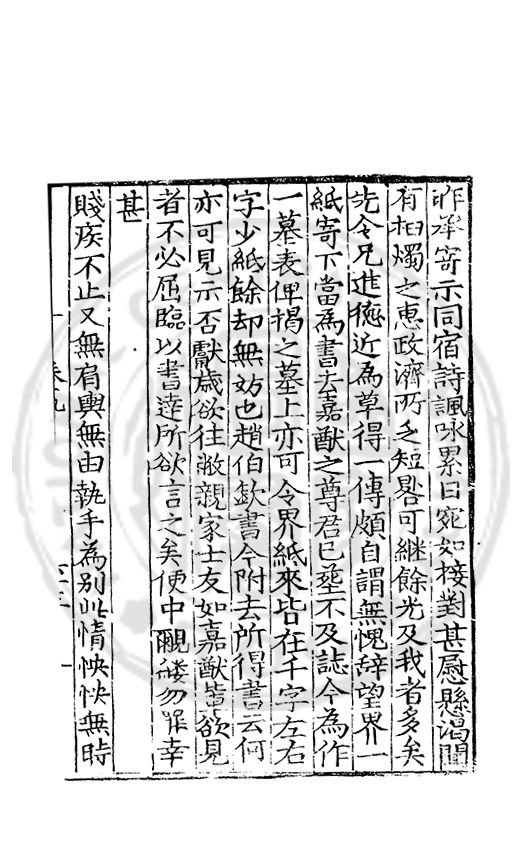 昨承寄示同宿詩諷咏累日宛如接對甚慰懸渴聞
有柏燭之惠政濟所乏短晷可繼餘光及我者多矣
先令兄進德近為草得一傳頗自謂無愧辭望界一
紙寄下當為書去嘉猷之尊君已塟不及誌今為作
一墓表俾揭之墓上亦可令界紙來皆在千字左右
字少紙餘却無妨也趙伯欽書今附去所得書云何
亦可見示否獻歲欲往敝親家士友如嘉猷皆欲見
者不必屈臨以書達所欲言之矣便中覼縷勿罪幸
甚
賤疾不止又無肩輿無由執手為別此情怏怏無時
卷九